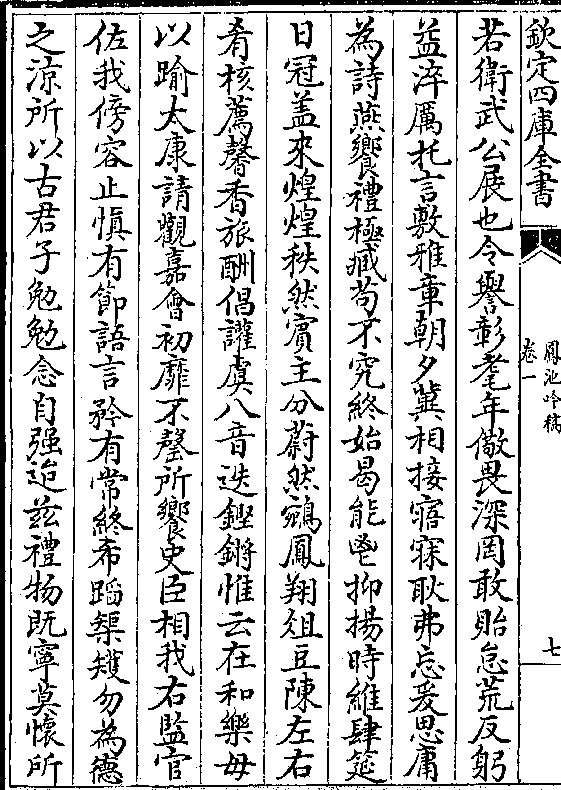 欽定四庫全書
鳳池吟稿
卷一
七
若衛武公展也令譽彰耄年儆畏深罔敢貽怠荒反躬
益淬厲托言敷雅章朝夕冀相接寤寐耿弗忘爰思庸
為詩燕饗禮極臧苟不究終始曷能鬯抑揚時維肆筵
日冠盖來煌煌秩然賓主分蔚然鵷鳳翔俎豆陳左右
肴核薦馨香旅酬倡讙虞八音迭鏗鏘惟云在和樂毋
以踰太康請觀嘉會初靡不罄所饗史臣相我右監官
佐我傍容止慎有節語言矜有常終希蹈榘矱勿為德
之涼所以古君子勉勉念自强迨兹禮物既寧莫懷所